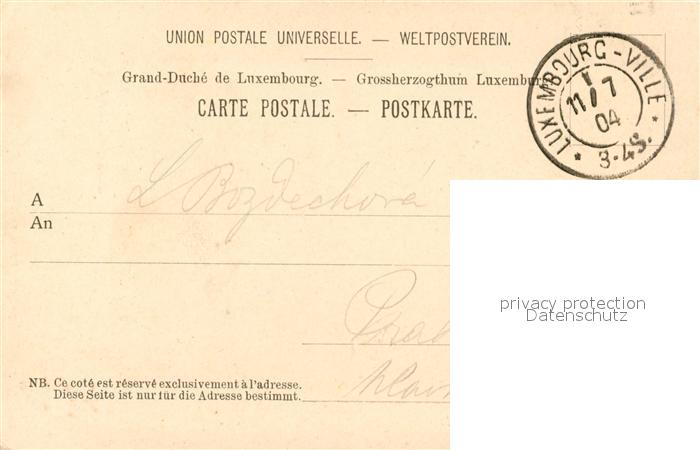 UNION POSTALE UNIVERSELLE. — WELTPOSTVEREIN.
Grand-Duché de Luxembourg. — Grossherzogthum Luxemburg
CARTE POSTALE. — POSTKARTE.
LUXEMBOURG-VILLE
11 7
04
* 3-4S. *
A L Bozdechová
An
privacy protection
Datenschutz
NB. Ce coté est réservé exclusivement à l'adresse.
Diese Seite ist nur für die Adresse bestimmt.